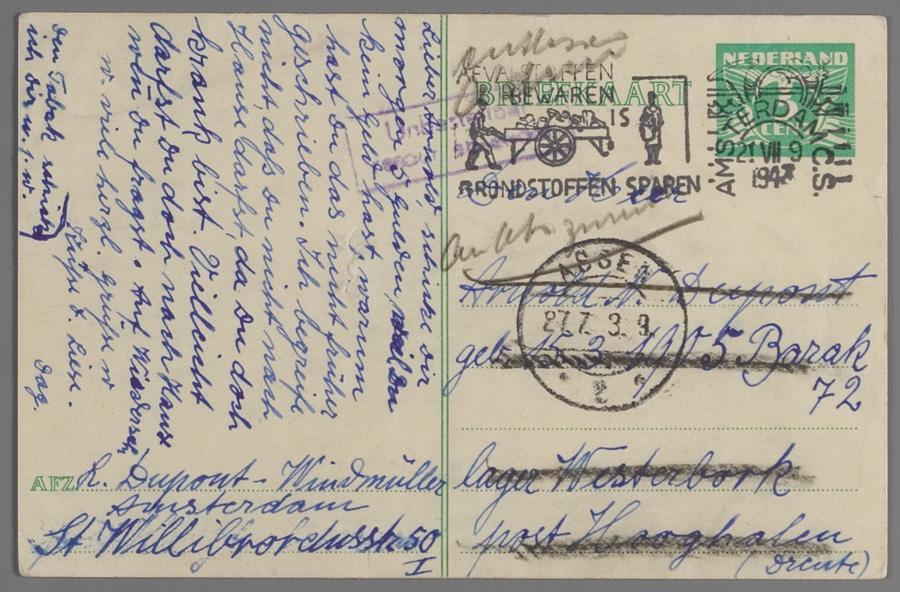 Lieber Arnold, schicke dir
morgen 5 gulden, weil du
kein Geld hast, warum
hast du das nicht früher
geschrieben. Ich begreife
nicht, das du nicht nach
Hause darfst, da du doch
krank bist. Vielleicht
darfst du doch nach Hause
wen du fragst. Auf Wiedersen,
u. viele herzl. Grüße v.
Käthe u. Liese.
Dag.
Den Tabak schick
ich dir u.s.w.
AFZ. R. Dupont-Windmüller
Amsterdam
St Willibrordusstr 50
I
Entlassen
AFVALSTOFFEN
BEWAREN
IS
GRONDSTOFFEN SPAREN
BRIEFKAART
NEDERLAND
5
CENT
AMSTERDAM C.S.
21 VII 9
1943
Den Heer
zurück
ASSEN
27.7.3.9
Arnold N. Dupont
geb. 15.3.1905 Barak
72
lager Westerbork
post Hooghalen
(Drente)